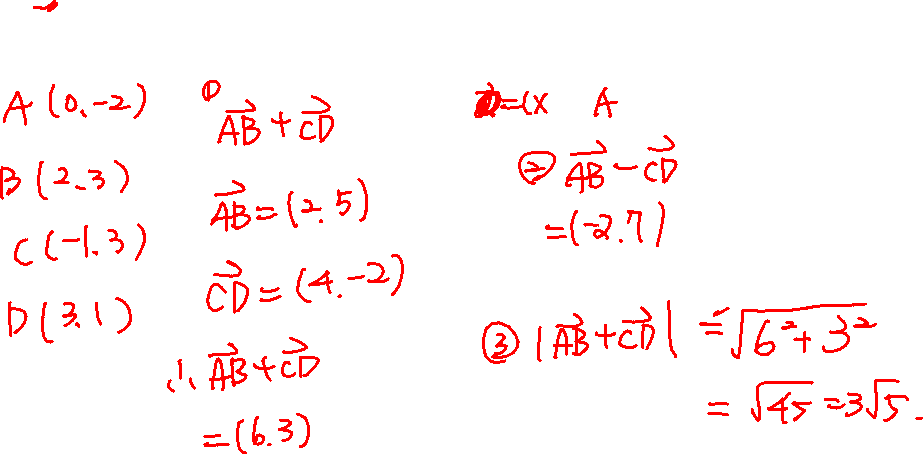 A(0.-2)
B(2.3)
C(-1.3)
D(3.1)
① AB+CD
AB=(2.5)
CD=(4.-2)
∴ AB+CD
=(6.3)
=(x A
② AB-CD
=(-2.7)
③ |AB+CD| = √6²+3²
= √45 = 3√5.